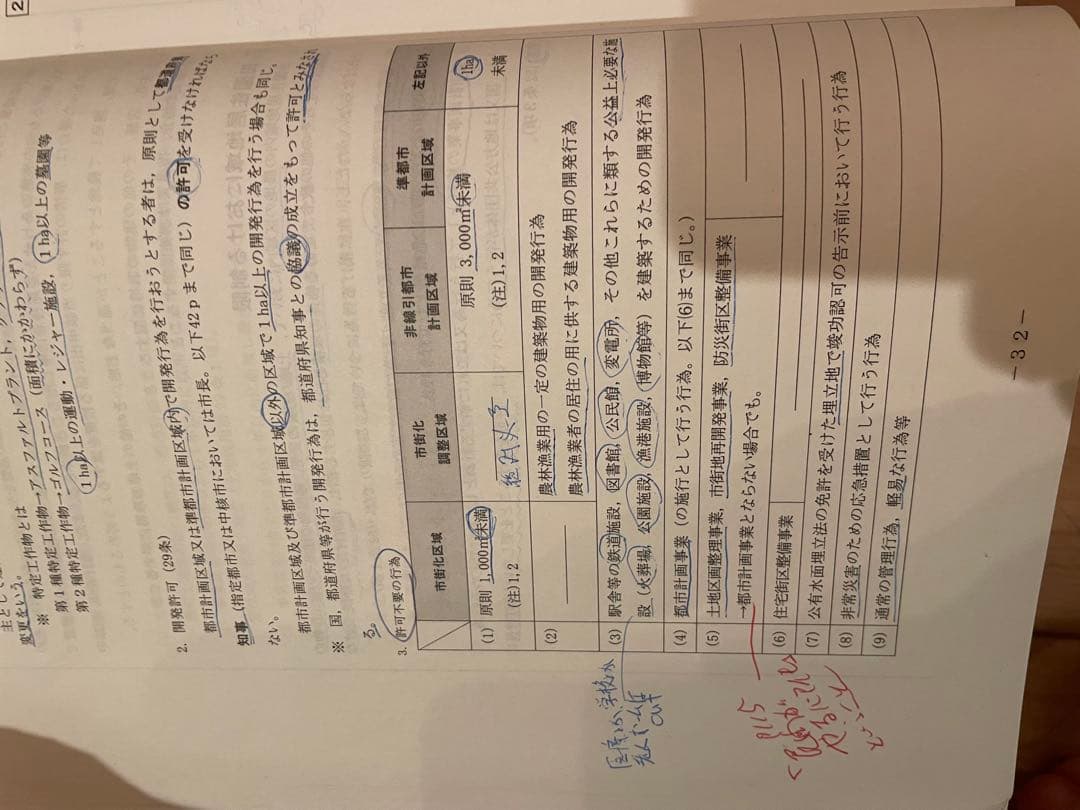 2
変更をいう。
※ 特定工作物とは
第1種特定工作物→アスファルトプラント,
第2種特定工作物→ゴルフコース（面積にかかわらず）
1ha以上の運動・レジャー施設, 1ha以上の墓園等
2. 開発許可（29条）
都市計画区域又は準都市計画区域内で開発行為を行おうとする者は, 原則として都道府県
知事（指定都市又は中核市においては市長。以下42pまで同じ）の許可を受けなければなら
ない。
都市計画区域及び準都市計画区域以外の区域で1ha以上の開発行為を行う場合も同じ。
※ 国, 都道府県等が行う開発行為は, 都道府県知事との協議の成立をもって許可とみなされ
る。
3. 許可不要の行為
市街化区域 市街化調整区域 非線引都市計画区域 準都市計画区域 左記以外
(1) 原則1,000㎡未満 (注)1,2 絶対必要 原則3,000㎡未満 (注)1,2 1ha未満
(2) ―― 農林漁業用の一定の建築物用の開発行為
農林漁業者の居住の用に供する建築物用の開発行為
(3) 駅舎等の鉄道施設, 図書館, 公民館, 変電所, その他これらに類する公益上必要な施
設（火葬場, 公園施設, 漁港施設, 博物館等）を建築するための開発行為
(4) 都市計画事業（の施行として行う行為。以下(6)まで同じ。）
(5) 土地区画整理事業, 市街地再開発事業, 防災街区整備事業 ――
→都市計画事業とならない場合でも。
(6) 住宅街区整備事業 ――
(7) 公有水面埋立法の免許を受けた埋立地で竣功認可の告示前において行う行為
(8) 非常災害のための応急措置として行う行為
(9) 通常の管理行為, 軽易な行為等
医療とか学校とか
老人ホームは
out
P115
－32－